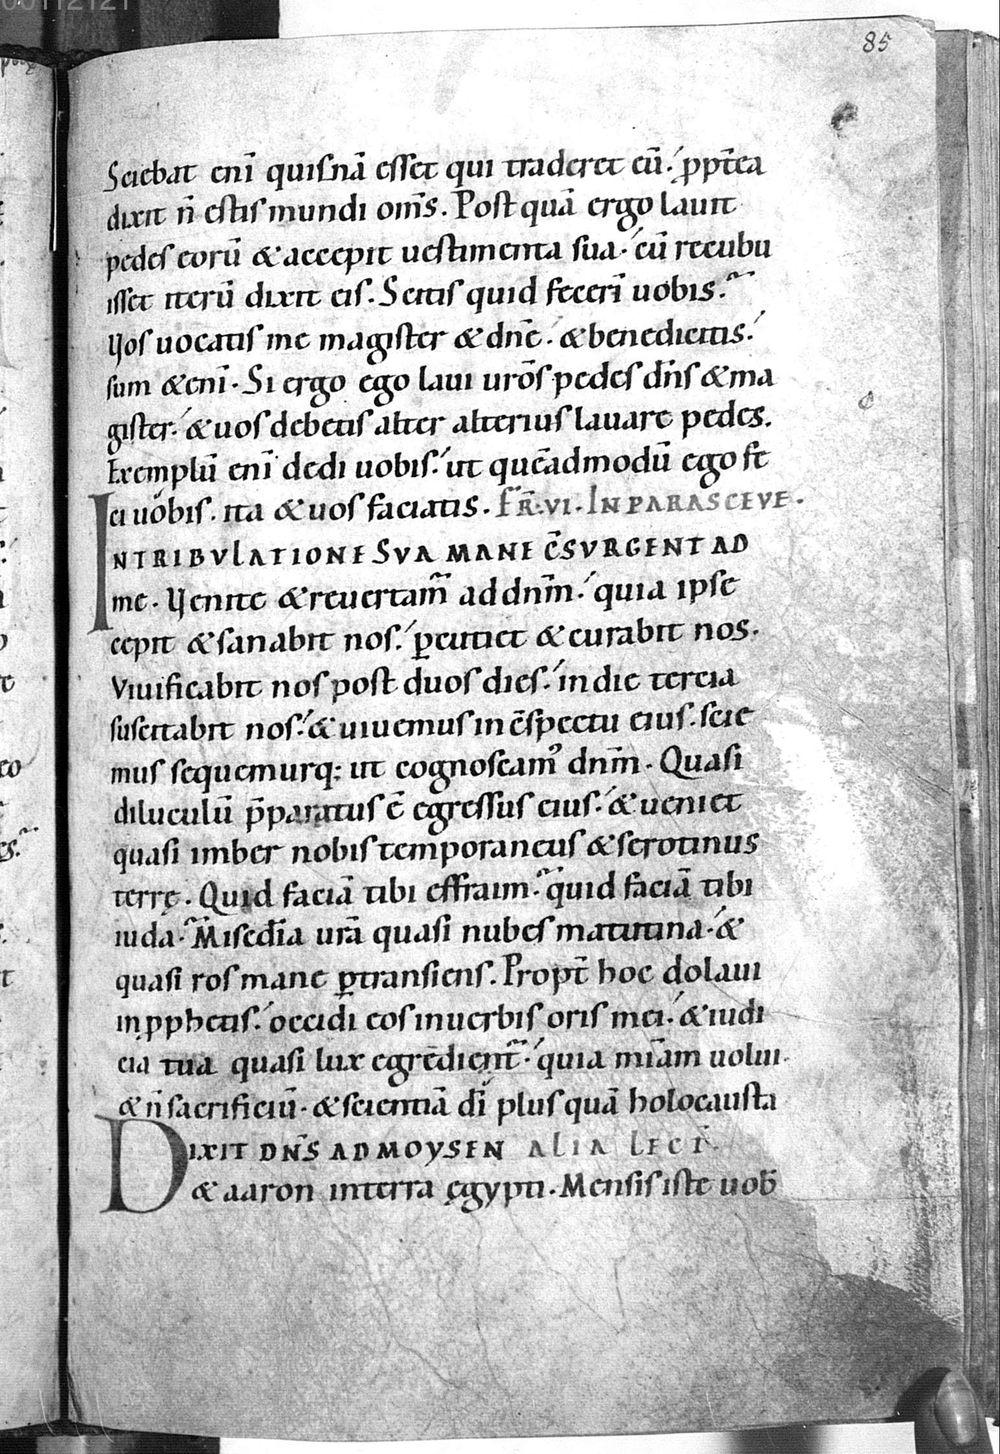 00112121
85
Sciebat enī quisnā esset qui traderet eū. ppt̄ea
dixit n̄ estis mundi om̄s. Post quā ergo lauit
pedes eorū & accepit uestimenta sua. cū recubu
isset iterū dixit eis. Scitis quid fecerī uobis.
Vos uocatis me magister & dn̄e. & benedicitis.
sum &enī. Si ergo ego laui ur̄os pedes dn̄s & ma
gister. & uos debetis alter alterius lauare pedes.
Exemplū enī dedi uobis. ut quēadmodū ego fe
ci uobis. ita & uos faciatis. FR̄. VI. IN PARASCEVE.
IN TRIBVLATIONE SVA MANE C̄SVRGENT AD
me. Venite & reuertam̄ ad dn̄m. quia ipse
cepit & sanabit nos. ꝑcutiet & curabit nos.
Viuificabit nos post duos dies. in die tercia
suscitabit nos. & uiuemus in c̄spectu eius. scie
mus sequemurq; ut cognoscam᾽ dn̄m. Quasi
diluculū p̄paratus ē egressus eius. & ueniet
quasi imber nobis temporaneus & serotinus
terrę. Quid faciā tibi effraim. quid faciā tibi
iuda. Misc̄dia ur̄a quasi nubes matutina. &
quasi ros mane ꝑtransiens. Propt̄ hoc dolaui
in pphetis. occidi eos in uerbis oris mei. & iudi
cia tua quasi lux egrēdient̄. quia mīam uolui.
& n̄ sacrificiū. & scientiā dī plus quā holocausta
DIXIT DN̄S AD MOYSEN ALIA LECT̄.
& aaron in terra ęgypti. Mensis iste uob̄